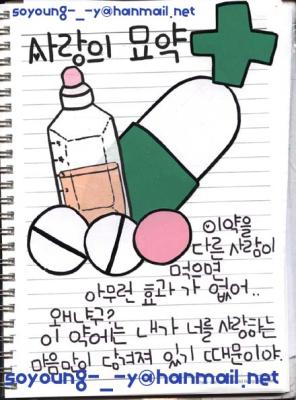 soyoung-_-y@hanmail.net
사랑의 묘약
이약을
다른 사람이
먹으면
아무런 효과가 없어..
왜냐구?
이 약에는 내가 너를 사랑하는
마음만이 담겨져 있기 때문이야.
soyoung-_-y@hanmail.net